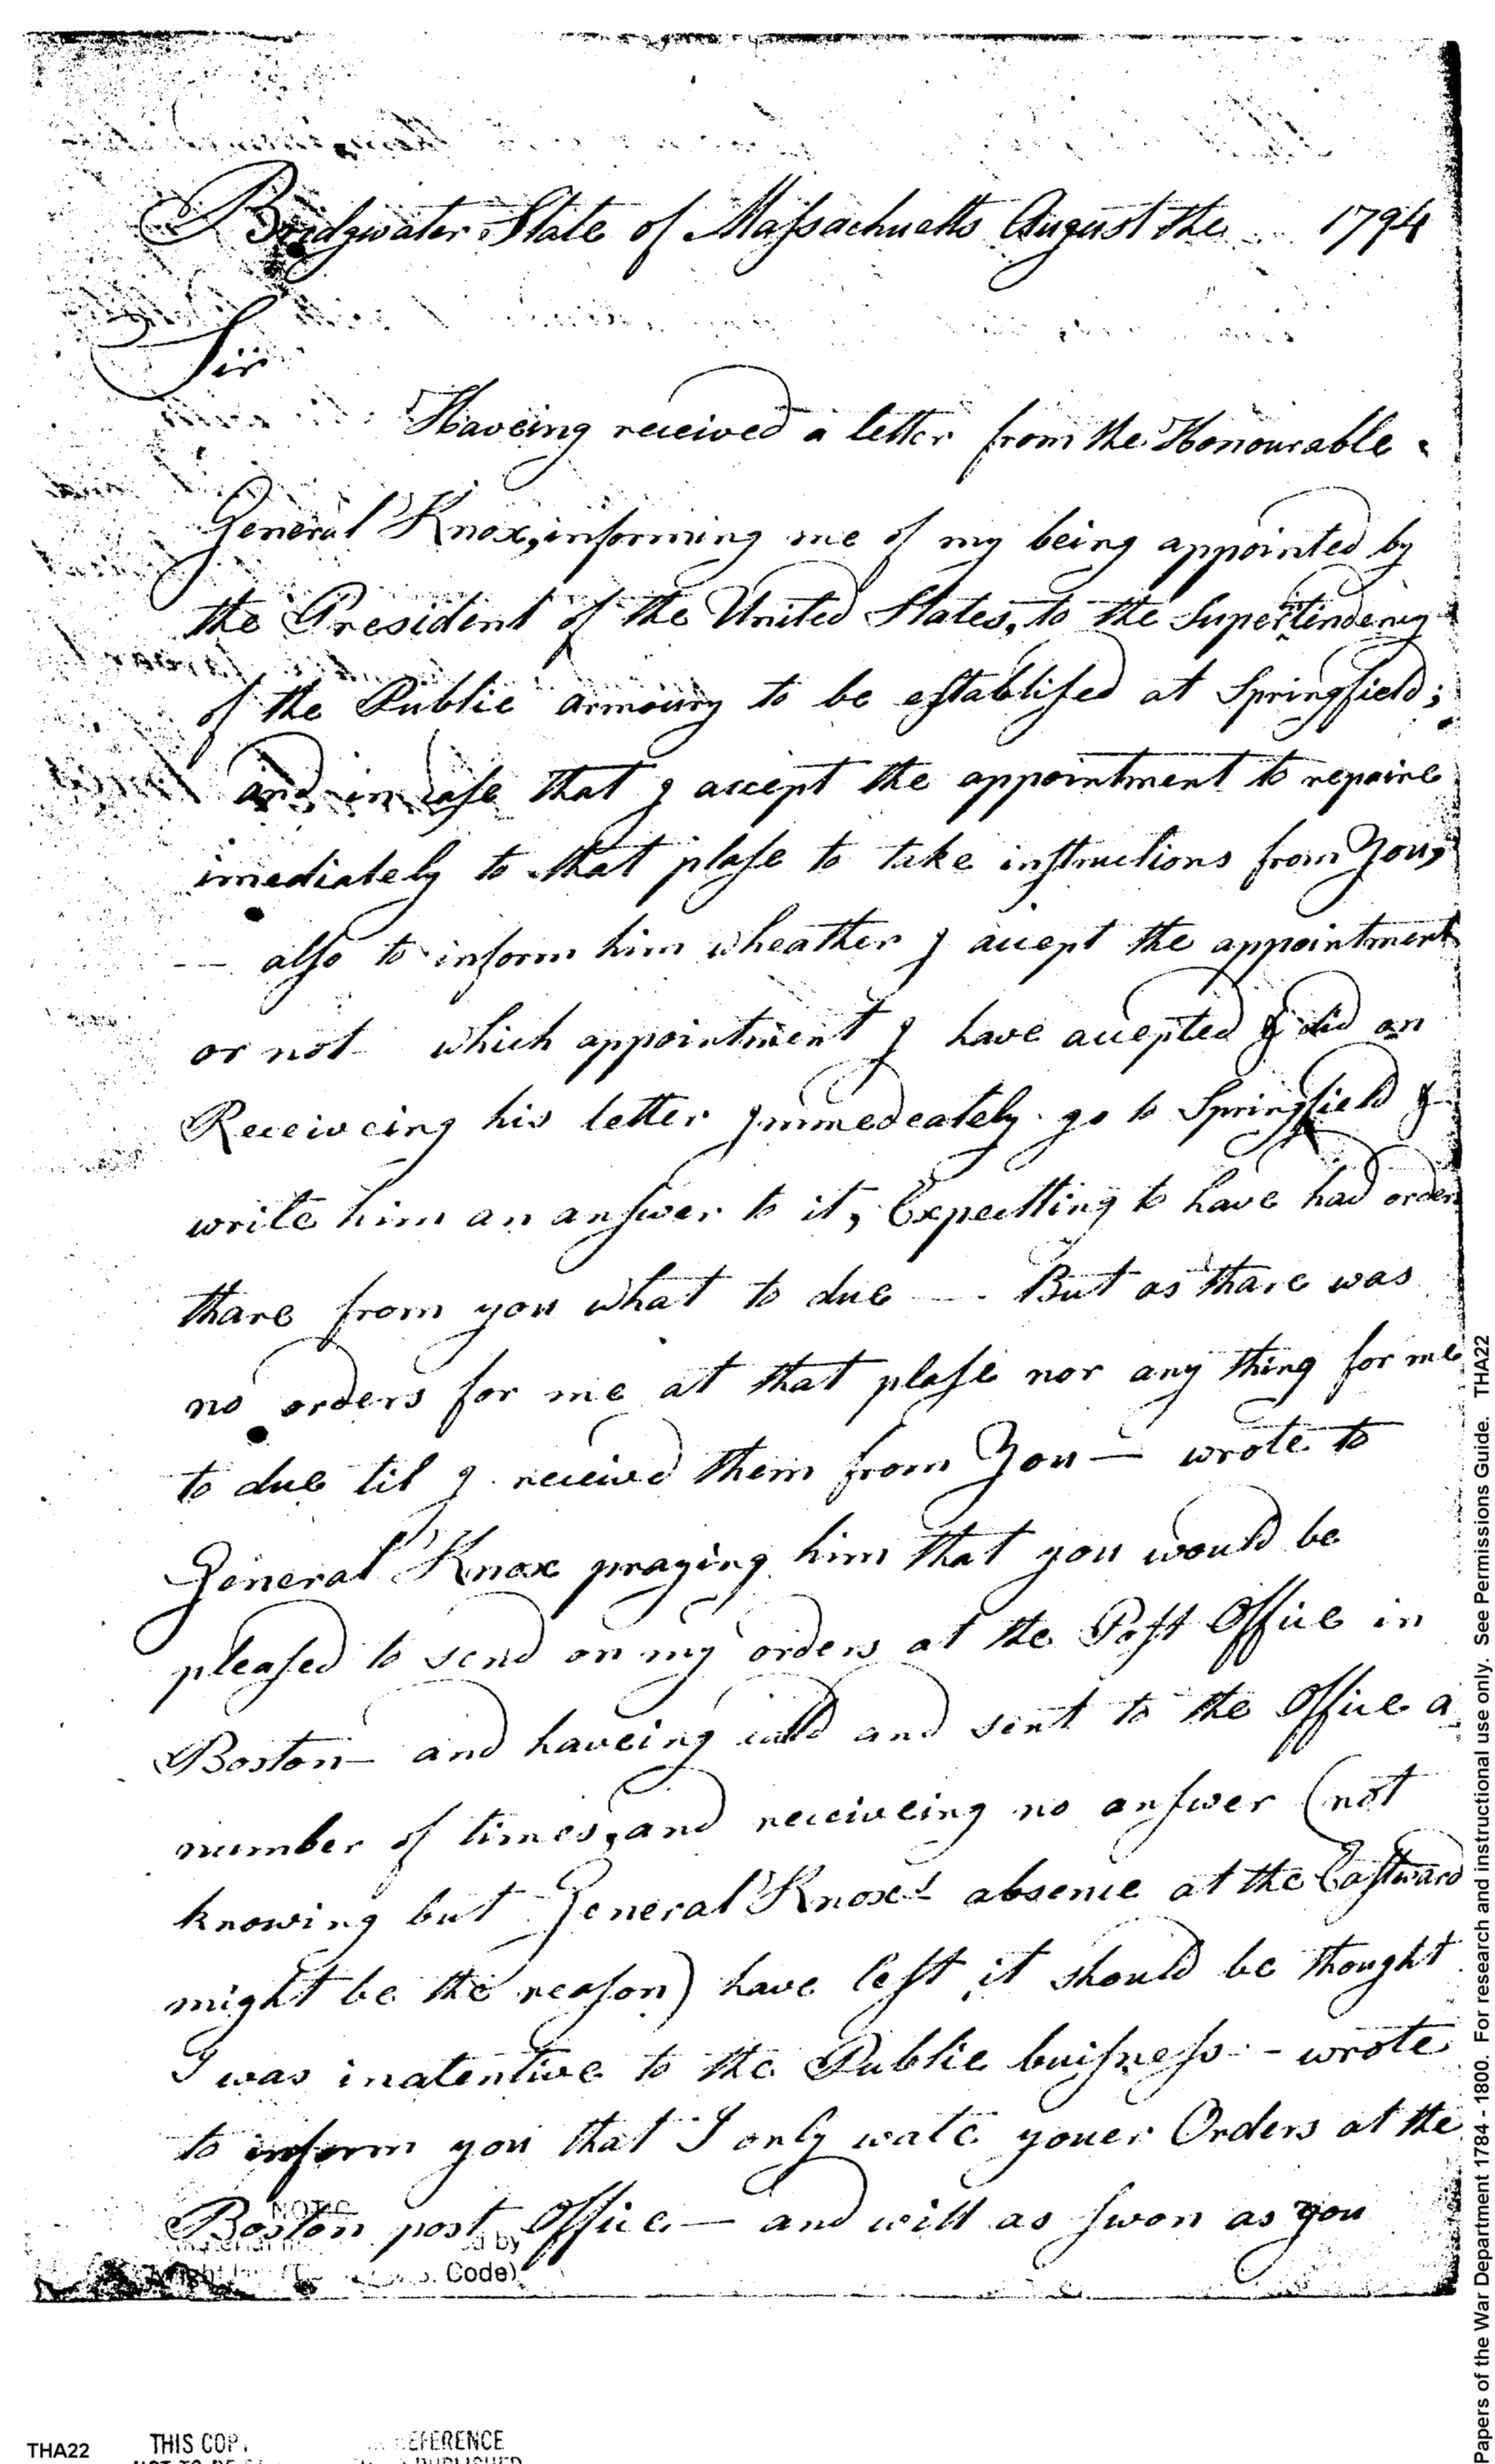 Bridgwater State of Massachuetts August the 1794
Sir
Haveing received a letter from the Honourable
General Knox, informing me of my being appointed by
the President of the United States, to the Supertindency
of the Public armoury to be establised at Springfield;
and in case that I accept the appointment to repaire
imediately to that plase to take instructions from You,
— also to inform him wheather I accept the appointment
or not — which appointment I have accepted & did on
Receiveing his letter Immedeately go to Springfield &
write him an answer to it, Expectting to have had orders
thare from you what to due — But as thare was
no orders for me at that plase nor any thing for me
to due til I received them from You — wrote to
General Knox praying him that you would be
pleased to send on my orders at the Post Office in
Boston — and haveing calld and sent to the Office a
number of times, and receiveing no answer (not
knowing but General Knox's absence at the Eastward
might be the reason) have lest it should be thought
I was inatentive to the Public buisness — wrote
to inform you that I only wate youer Orders at the
Boston post Office — and will as swon as you
NOTIC
Code)
THA22
THIS COP
EFERENCE
Papers of the War Department 1784 - 1800. For research and instructional use only. See Permissions Guide. THA22